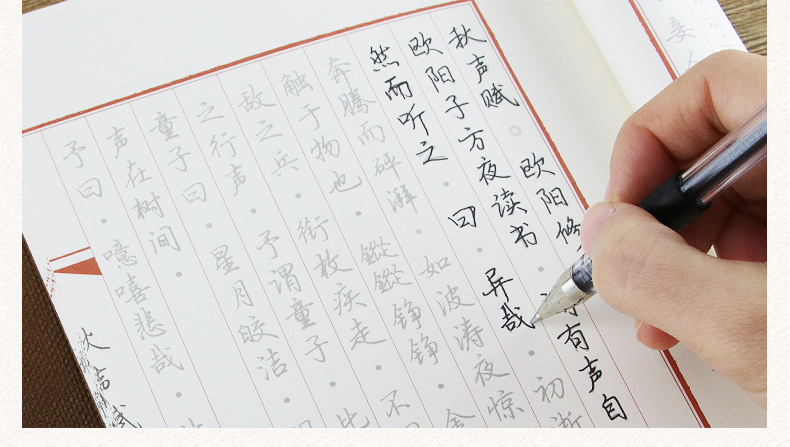 秋声赋 欧阳修
欧阳子方夜读书 。 有声自
然而听之 。 曰 。 异哉 。 初淅
奔腾而砰湃 。 如波涛夜惊
触于物也 。 鏦鏦铮铮 。 金
敌之兵 。 衔枚疾走 。 不
之行声 。 予谓童子 。 此
童子曰 。 星月皎洁 。
声在树间 。
予曰 。 噫嘻悲哉 。
声赋